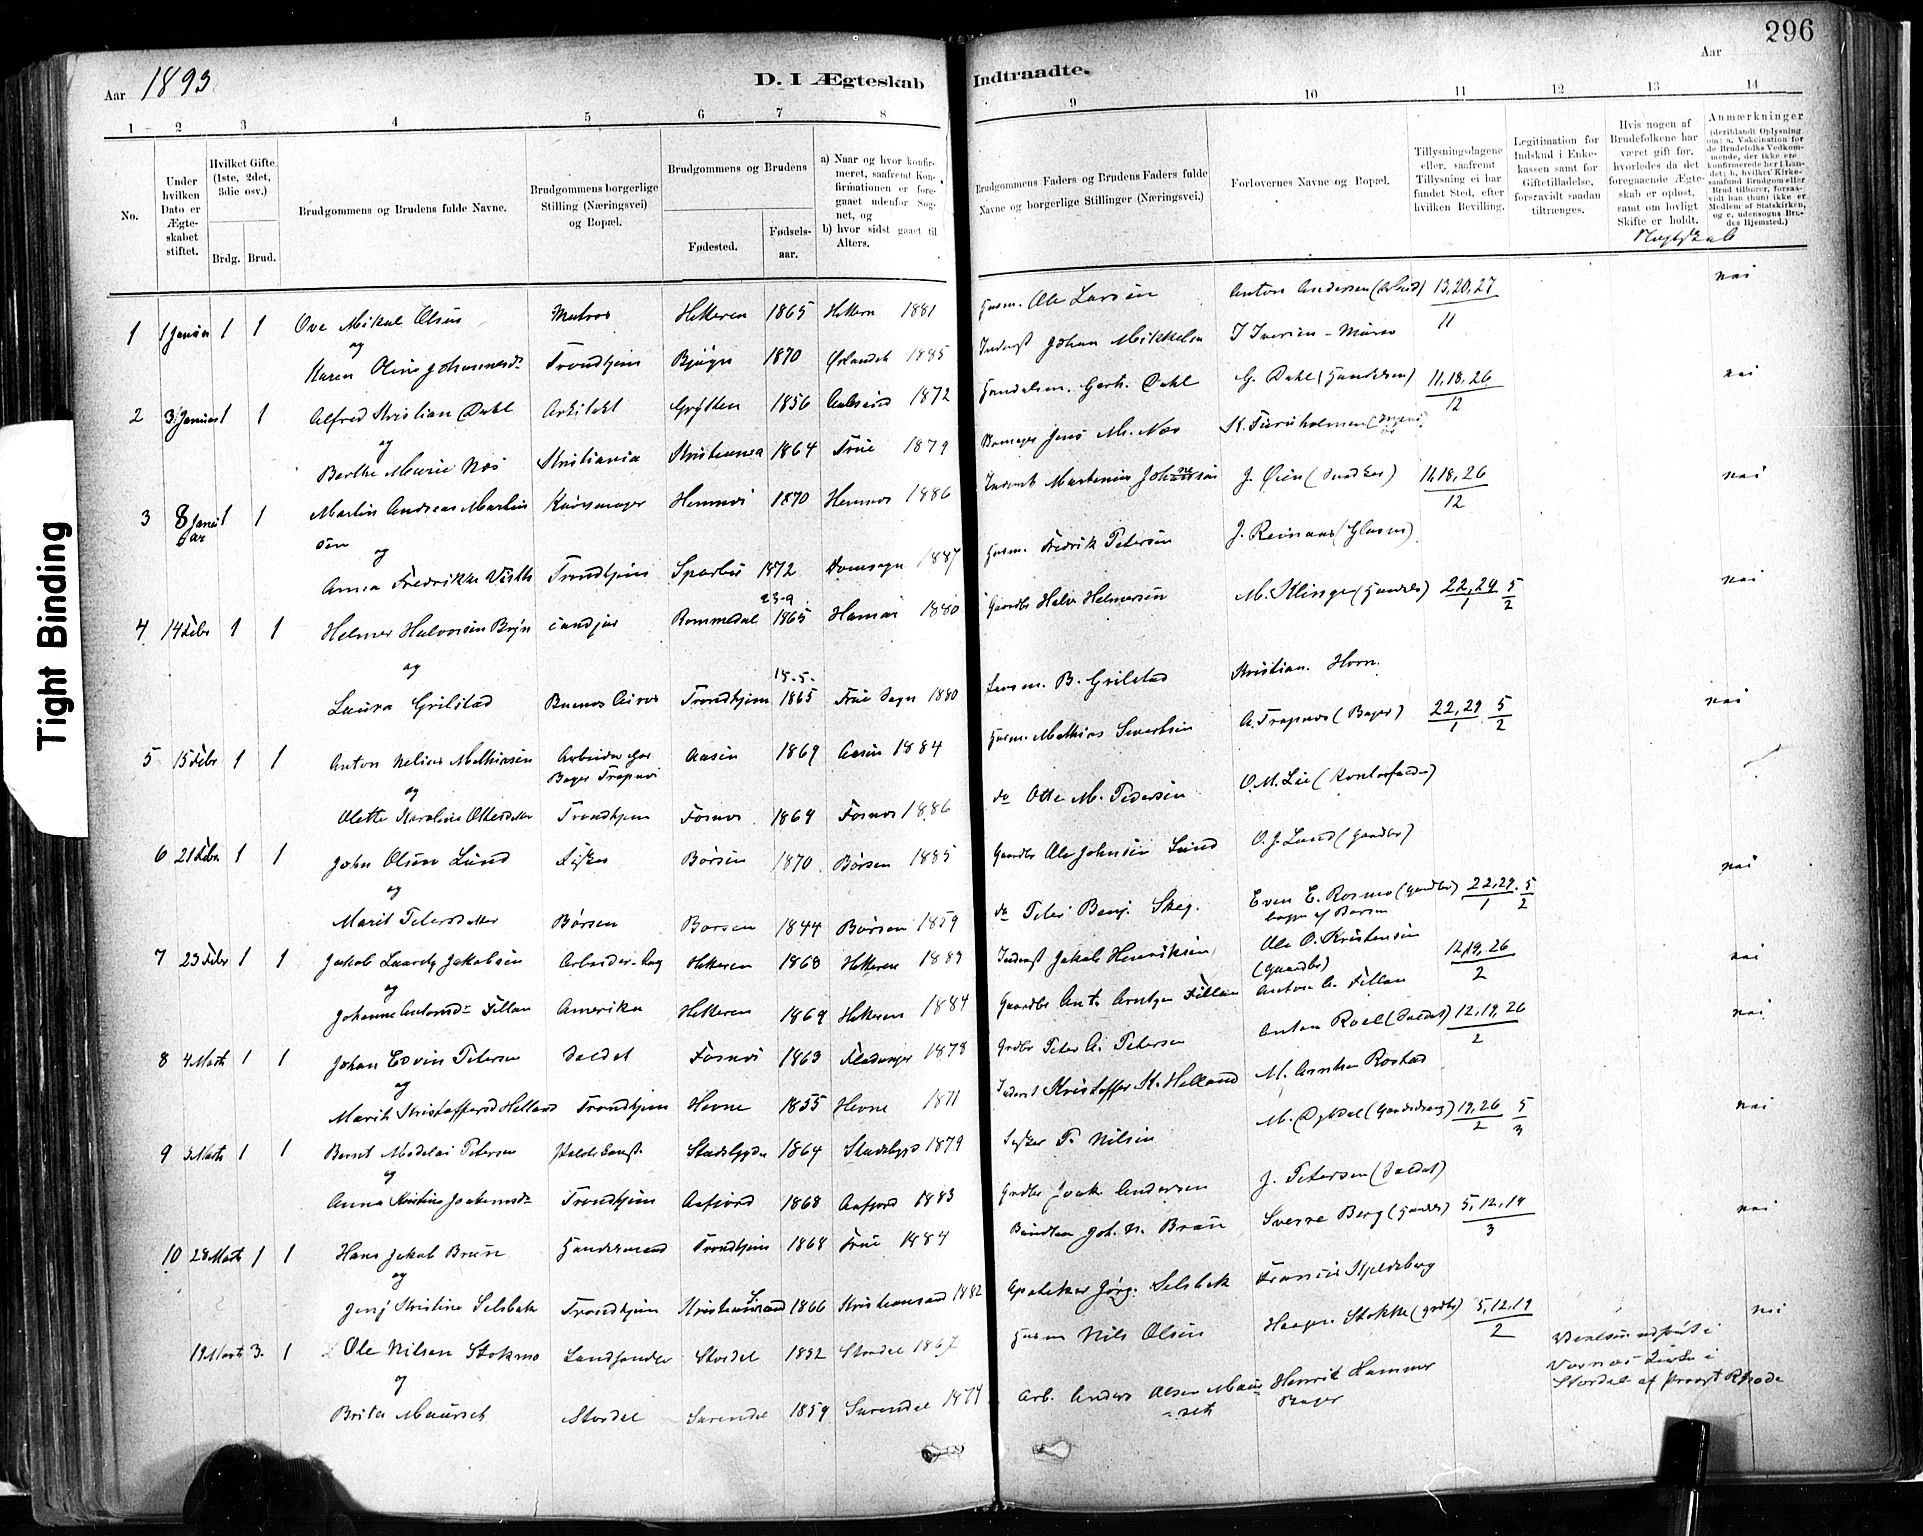 296
Aar 1893
D. I Ægteskab Indtraadte.
Aar
1 2 3 4 5 6 7 8 9 10 11 12 13 14
No.
Under hvilken Dato er Ægteskabet stiftet.
Hvilket Gifte. (1ste, 2det, 3die osv.)
Brdg. Brud.
Brudgommens og Brudens fulde Navne.
Brudgommens borgerlige Stilling (Næringsvei) og Bopæl.
Brudgommens og Brudens
Fødested.
Fødsels-aar.
a) Naar og hvor konfirmeret, saafremt Konfirmationen er foregaaet udenfor Sognet, og
b) hvor sidst gaaet til Alters.
Brudgommens Faders og Brudens Faders fulde Navne og borgerlige Stillinger (Næringsvei.)
Forlovernes Navne og Bopæl.
Tillysningsdagene eller, saafremt Tillysning ei har fundet Sted, efter hvilken Bevilling.
Legitimation for Indskud i Enkekassen samt for Giftetilladelse, forsaavidt saadan tiltrænges.
Hvis nogen af Brudefolkene har været gift før, hvorledes da det foregaaende Ægteskab er opløst, samt om lovligt Skifte er holdt.
Anmærkninger
(deriblandt Oplysning om: a. Vakcination for de Brudefolks Vedkommende, der ikke ere konfirmerede her i Landet; b. hvilket Kirkesamfund Brudgom eller Brud tilhører, forsaavidt han (hun) ikke er Medlem af Statskirken, og c. udensogns Brudes Hjemsted.)
1 1 1 Ove Mikal Olsen Matros Hitteren 1865 Hittern 1881 Husm. Ole Larsen Anton Andersen (Arbeid) 13,20,27 nei
og
Karen Oline Johannesdr Trondhjem Bjugn 1870 Ørlandet 1885 Inderst Johan Mikkelsen J Iversen - Murer 11
2 3 Januar 1 1 Alfred Kristian Dahl Arkitekt Grytten 1856 Aalesund 1872 Handelsm. Gerh. Dahl G. Dahl (Handelsm) 11,18,26 nei
og 12
Berthe Marie Næs Kristiania Kristiansa 1864 Frue 1879 Jens M. Næs
3 8 Januar 1 1 Martin Andreas Martinsen Hemnes 1870 Hemnes 1886 Inderst Martinus Johansen J. Øien (Snedker) 11,18,26 nei
og 12
Anna Fredrikke Trondhjem Sparbu 1872 Domsogn 1887 Husm. Fredrik Petersen
4 14 Febr 1 1 Helmer Halvorsen Bryn Landjør Rommedal 23-9 1865 Hamar 1880 Gaardbr Halv Helmersen M. Klinge (Handels) 22,29 5 nei
og 1 2
Laura Grilstad Buenos Aires Trondhjem 15-5- 1865 Frue Sogn 1880 B. Grilstad Kristian Horn.
5 15 Febr 1 1 Anton Nelius Mathiasen Arbeider hos Bager Trapnes Aasen 1869 Aasen 1884 Husm Mathias Sivertsen A. Trapnes (Bager) 22,29 5 nei
og 1 2
Olette Karoline Ottesdatter Trondhjem Fosnes 1864 Fosnes 1886 do Otte M. Pedersen O. M. Lie
6 21 Febr 1 1 John Olsen Lund Fisker Børsen 1870 Børsen 1885 Gaardbr Ole Johnsen Lund O. J. Lund (Gaardbr)
og nei
Marit Petersdatter Børsen Børsen 1844 Børsen 1859 do Peter Benj. Skeg. Even E. Rosmo (Gaardbr) 22,29 5
begge af Børsen 1 2
7 23 Febr 1 1 Jakob Jakobsen Arbeider Hitteren 1863 Hitteren 1883 Inderst Jakob Henriksen Ole O. Kristensen (Gaardbr) 12,19,26 nei
og 2
Johanne Antonsdr Fillan Amerika Hitteren 1869 Hitteren 1884 Gaardbr Ant. Arntzen Fillan Anton A. Fillan
8 4 Marts 1 1 Johan Edvin Petersen Soldat Fosnes 1863 Fladanger 1878 Grdbr Peter A. Petersen Anton Roel (Soldat) 12,19,26 nei
og 2
Marit Kristoffersd Helland Trondhjem Hevne 1855 Hevne 1871 Inderst Kristoffer K. Helland M. Arntsen Rostad
9 3 Marts 1 1 Bernt Petersen Stadsbygden 1864 Stadsbygd 1879 P. Nilsen M. Dybdal 19,26 5 nei
og 2 3
Anna Kristine Joakimsdr Trondhjem Aafjord 1868 Aafjord 1883 Grdbr Joak Andersen J. Petersen (Soldat)
10 28 Marts 1 1 Hans Jakob Bruun Handelsmand Trondhjem 1868 Frue 1884 Joh. N. Bruun Sverre Berg (Handels) 5,12,19 nei
og 3
Jenj Kristine Selsbak Trondhjem Kristianssand 1866 Kristianssand 1882 Apoteker Jørg. Selsbak Francis Kjeldsberg
19 Marts 3. 1 Ole Nilsen Stokmo Landhandler Stordal 1832 Stordal 1867 Husm Nils Olsen Haagen Stokke (grdbr) 5,12,19 nei
og 2
Brita Maursæt Stordal Surendal 1859 Surendal 1874 Arb. Anders Olsen Maursæt Henrik Hammer Bager
Vielsen udført i Værnes Kirke i Stordal af Provst Rhode
Tight Binding